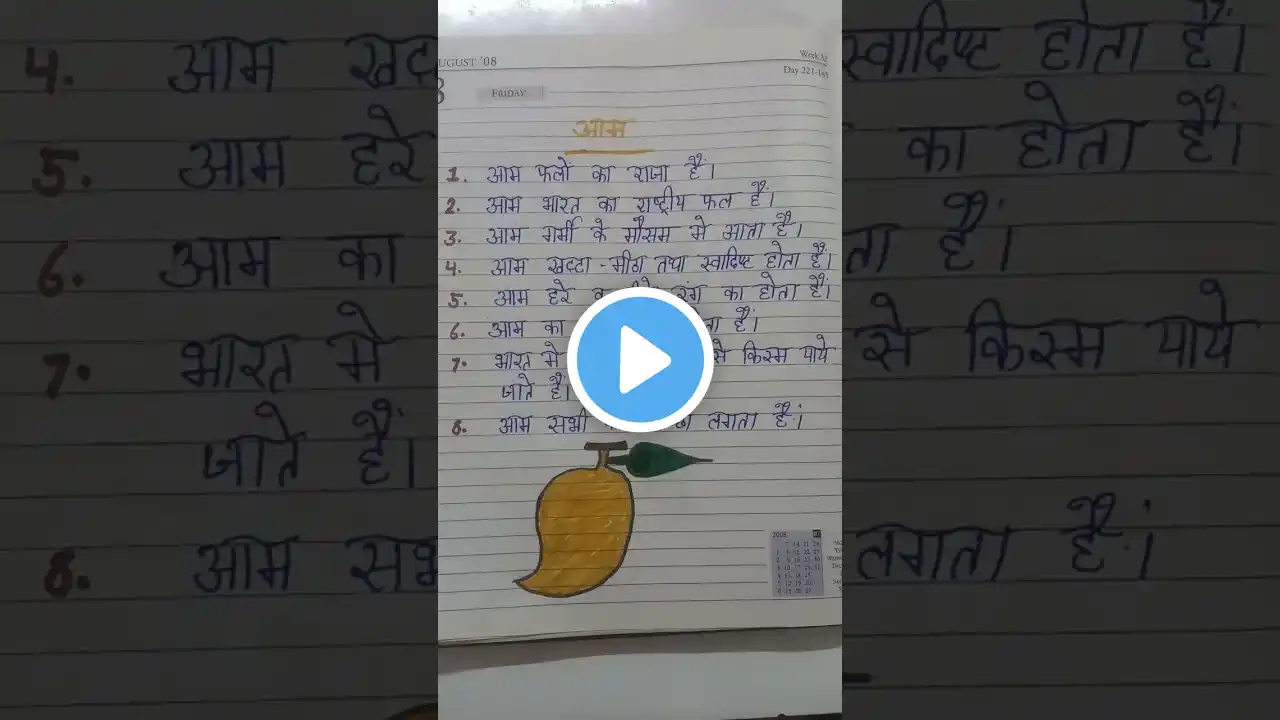 AUGUST '08
Week 32
Day 221-145
FRIDAY
आम
1. आम फलों का राजा हैं।
2. आम भारत का राष्ट्रीय फल हैं।
3. आम गर्मी के मौसम मे आता हैं।
4. आम खट्टा - मीठा तथा स्वादिष्ट होता हैं।
5. आम हरे रंग का होता हैं।
6. आम का हैं।
7. भारत मे से किस्म पाये
जाते हैं।
8. आम सभी लगता हैं।
2008